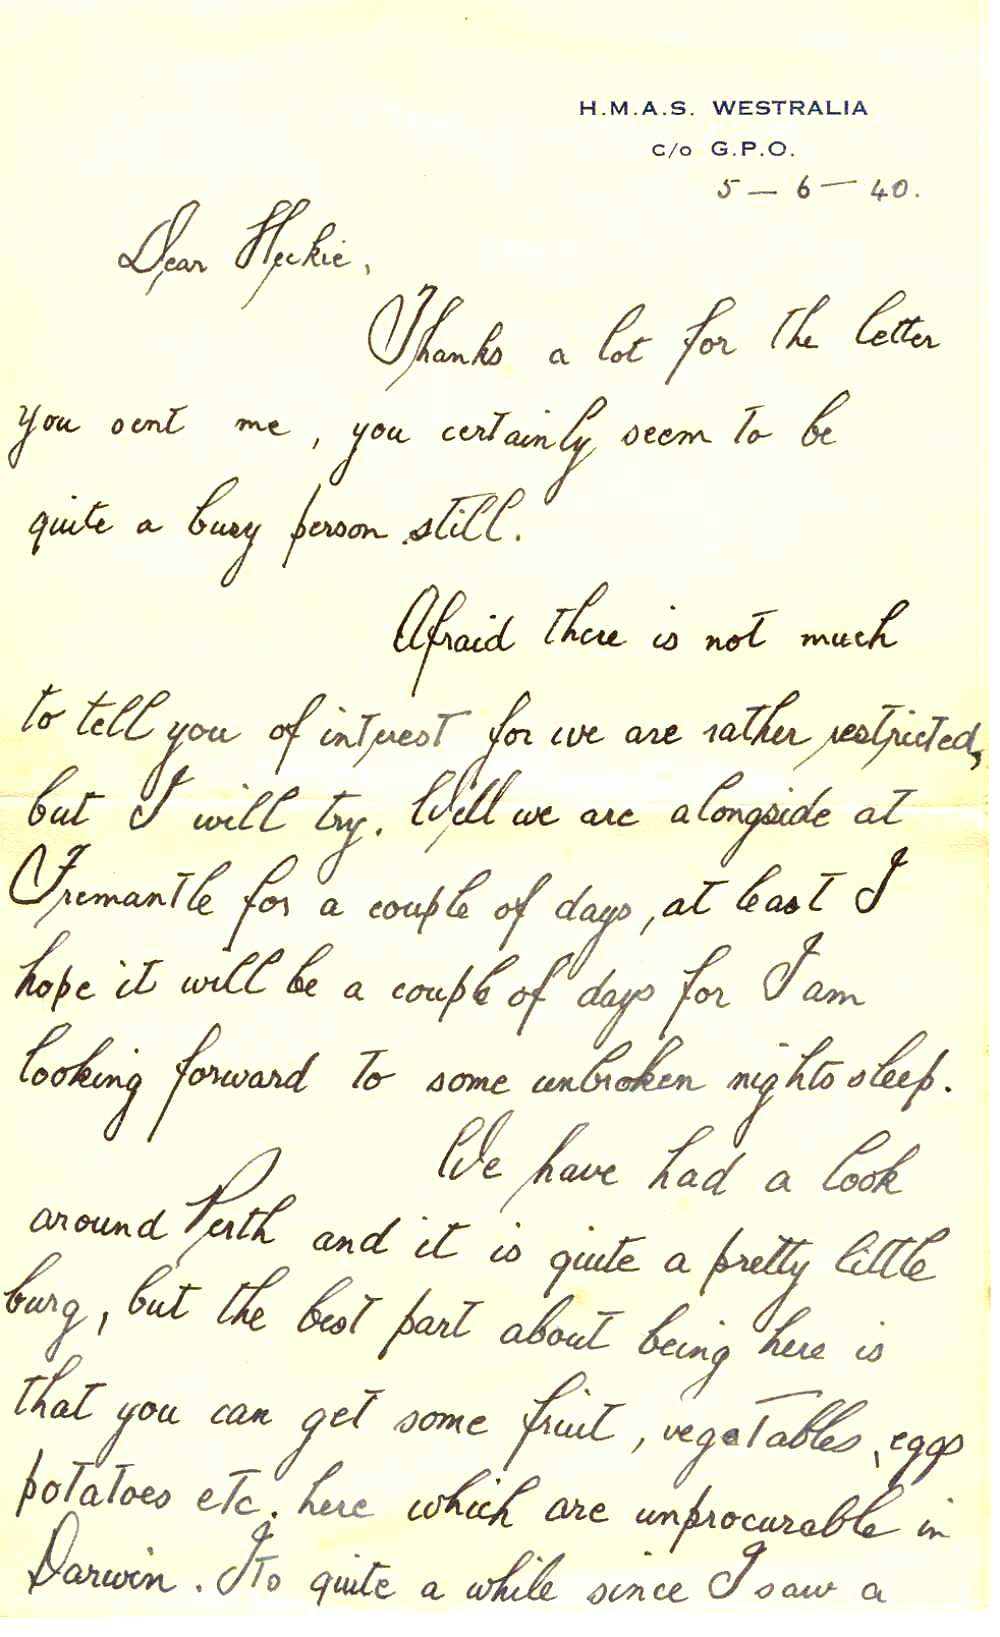 H.M.A.S. WESTRALIA
c/o G.P.O.
5 — 6 — 40.
Dear Heckie,
Thanks a lot for the letter
you sent me, you certainly seem to be
quite a busy person still.
Afraid there is not much
to tell you of interest for we are rather restricted,
but I will try. Well we are alongside at
Fremantle for a couple of days, at least I
hope it will be a couple of days for I am
looking forward to some unbroken nights sleep.
We have had a look
around Perth and it is quite a pretty little
burg, but the best part about being here is
that you can get some fruit, vegetables, eggs
potatoes etc. here which are unprocurable in
Darwin. Its quite a while since I saw a